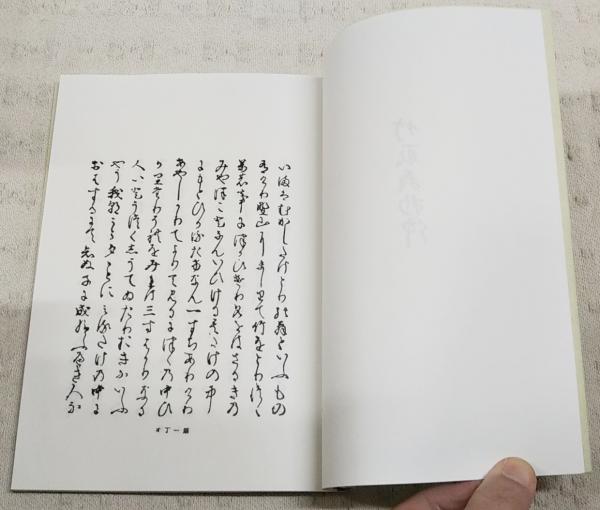 いまはむかしたけとりの翁といふもの
有けり野山にましりて竹をとりつゝ
萬の事につかひけり名をはさるきの
みやつことなんいひける其たけの中
にもとひかるたけなん一すちありけり
あやしかりてよりて見るにつゝの中ひ
かり
三寸はかりなる
人いとうつくしうてゐたりおきないふ
やう我朝
夕ことに
たけの中に
おはするにて
ぬ子に成給ふへき人な
第一丁オ